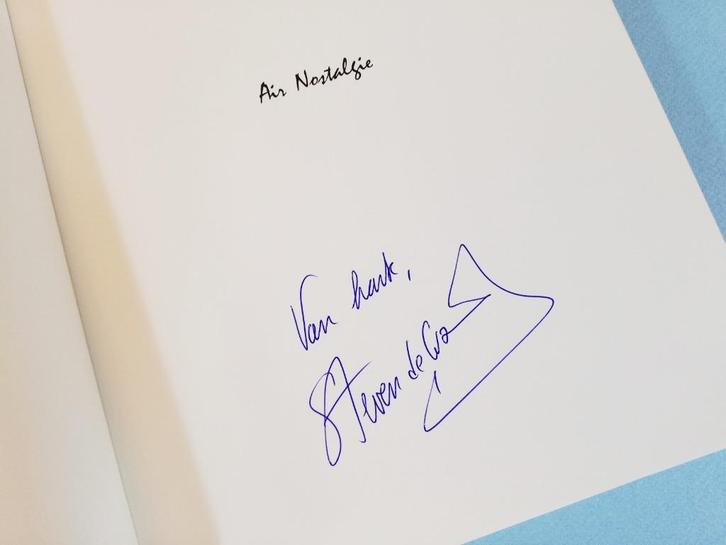 Air Nostalgie
Van hark,
Steven de Cra